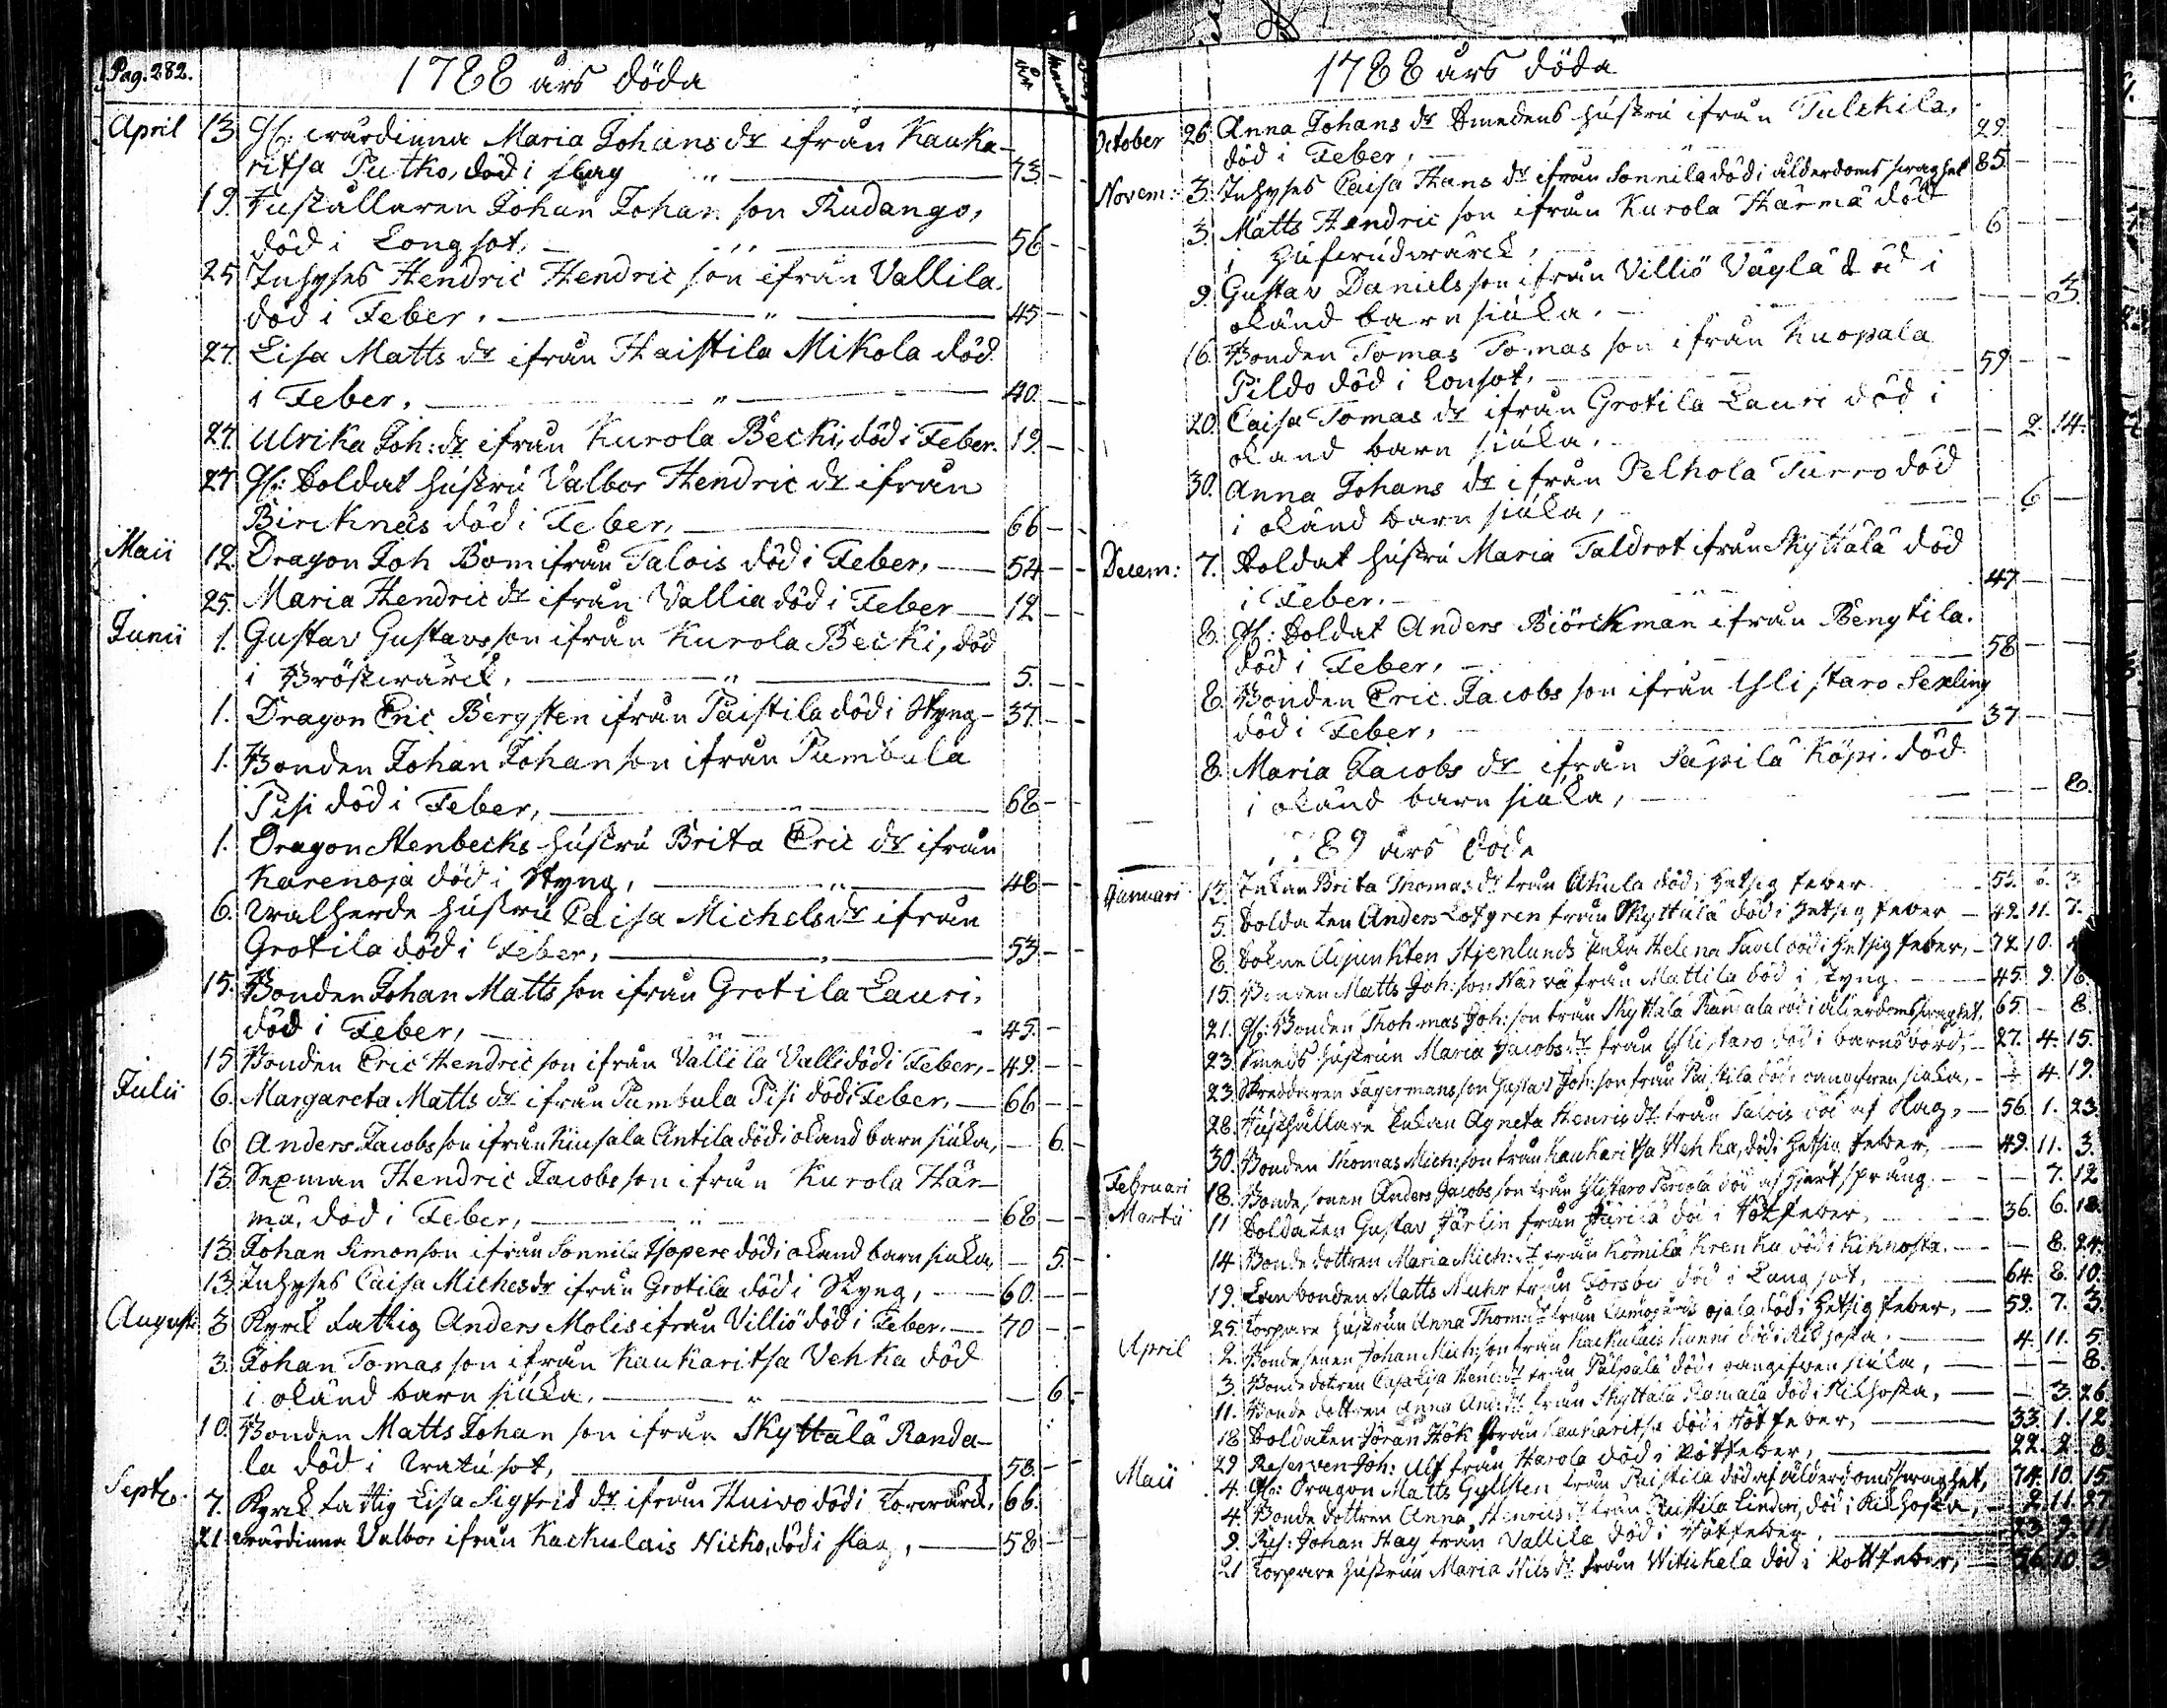 Pag. 282.
1788 års döda
år
April 13. Gl: wärdinna Maria Johans dr ifrån Kauka-
ritsa Putko, död i slag 73.
19. Inställaren Johan Johan son Rudango,
död i Longsot. 56
25 Inhyses Hendric Hendric son ifrån Vallila.
död i Feber. 45
27. Lisa Matts dr ifrån Haistila Mikola död
i Feber. 40.
27. Ulrika Joh: dr ifrån Kurola Becki, död i Feber. 19.
27 Gl: Soldat hústrú Valbor Hendric dr ifrån
Bircknäs död i Feber, 66
Maii 12. Dragon Joh Bom ifrån Talois död i Feber, 54
25. Maria Hendric dr ifrån Vallia död i Feber 12
Junii 1. Gustav Gustavs son ifrån Kurola Becki, död
i Bröstwärck, 5.
1. Dragon Eric Bergsten ifrån Paistila död i Styng 37.
1. Bonden Johan Johan son ifrån Pumbula
Pisi död i Feber, 68
1. Dragon Stenbecks hústrú Brita Eric dr ifrån
Karenoja död i Styng, 48
6. Walherde hústrú Caisa Michels dr ifrån
Grotila död i Feber, 53
15. Bonden Johan Matts son ifrån Grotila Lauri,
död i Feber, 45.
15 Bonden Eric Hendric son ifrån Vallila Valli död i Feber, 49.
Julii 6. Margareta Matts dr ifrån Pumbula Pisi död i Feber, 66
6 Anders Jacobs son ifrån Kiusala Antila död i okänd barn siúka, 6.
13. Sexman Hendric Jacobs son ifrån Kurola Här-
mä, död i Feber, 68
13. Johan Simon son ifrån Sonnila Isopere död i okänd barn siúka, 5.
13. Inhyses Caisa Miches dr ifrån Grotila död i Styng, 60.
Augusti 3 Kyrck fattig Anders Molis ifrån Villiö död i Feber. 70
3. Johan Tomas son ifrån Kaukaritsa Vehka död
i okänd barn siúka. 6.
10. Bonden Matts Johan son ifrån Skyttälä Randa-
la död i Watúsot, 58.
Septb. 7. Kyrck fattig Lisa Sigfrid dr ifrån Huivo död i Torrwärck. 66.
21. Wärdinna Valbor ifrån Kackulais Nicko, död i slag, 58
1788 års döda
October 26. Anna Johans dr Smedens hústrú ifrån Tulckila,
död i Feber, 29.
Novem: 3. Inhyses Caisa Hans dr ifrån Sonnila död i ålderdoms swaghet 85.
3. Matts Hendric son ifrån Kurola Härmä död
i Húfwúdwärck, 6
9. Gustav Daniels son ifrån Villiö Väglä död i
okänd barn siúka. 3.
16. Bonden Tomas Tomas son ifrån Kuopala
Pildo död i Lonsot, 59.
20. Caisa Tomas dr ifrån Grotila Lauri död i
okänd barn siúka. 2. 14.
30. Anna Johans dr ifrån Pelhola Turro död
i okänd barn siúka, 6
Decem: 7. Soldat hústrú Maria Taldrot ifrån Skyttälä död
i Feber. 47
8. Gl: Soldat Anders Biörckman ifrån Bengtila.
död i Feber, 58
8. Bonden Eric Jacobs son ifrån Ylistaro Sexling
död i Feber, 37
8. Maria Jacobs dr ifrån Säpilä Köpi. död
i okänd barn siúka, 8.
1789 års döda
Januari 12. Enkan Brita Thomas dr från Ahula död i hetsig feber 55. 6. 3
5. Soldaten Anders Löfgren från Skyttälä död i hetsig feber 42. 11. 7.
8. Sokne Adjunkten Stjenlunds Enka Helena Favel död i hetsig feber, 72 10.
15. Bonden Matts Joh: son Närvä från Mattila död i Styng. 45. 9. 16.
21. Gl: Bonden Thohmas Joh: son från Skyttälä död i ålderdoms swaghet. 65. 8.
23. Smeds hústrún Maria Jacobs dr från Ylistaro död i barnsbörd, 27. 4. 15.
23. Skreddaren Fagermans son Gustav Joh: son från Paistila död i oangifwen siúka, 4. 19.
28. Húshållare Enkan Agneta Henrics dr från Talois död af Slag, 56. 1. 23.
30. Bonden Thomas Mich: son från Kaukaritsa Wehka, död i hetsig feber, 49. 11. 3.
Februari 18. Bonde sonen Anders Jacobs son från Ylistaro död af Hjertsprång. 7. 12
Martii 11 Soldaten Gustav Järlin från död i Rötfeber, 36. 6. 18.
14 Bonde dottren Maria Mich: dr från Kömilä Krenka död i Kikhosta. 8. 24.
19. bonden Matts Muhr från Forsby död i Lang sot, 64. 8. 10.
25. Torpare hústrún Anna Thom: dr från ojala död i hetsig feber, 59. 7. 3.
April 2. Bonde sonen Johan Mich: son från Kackulais Kunni död i Kikhosta. 4. 11. 5.
3. Bonde dotren Caja Lisa Henr: dr från Pälpälä död i oangifwen siúka, 8.
11. Bonde dottren Anna And: dr från Skyttälä död i Kikhosta, 3. 26
18 Soldaten Jöran Hök från Kaukaritsa död i Rötfeber, 33. 1. 12
29 Reserven Joh: Ulf från Harola död i Rötfeber, 22. 2. 8
Maii 4. Gl: Dragon Matts Gyllsten från Paistila död af ålderdoms swaghet, 74. 10. 15.
4. Bonde dottren Anna Henrics dr från död i Kikhosta, 2. 11. 27
9. Res: Johan Hag från Vallila död i Rötfeber, 23. 9. 11
21 Torpare hústrún Maria Nils dr från Witickala död i Rottfeber, 26. 10 3